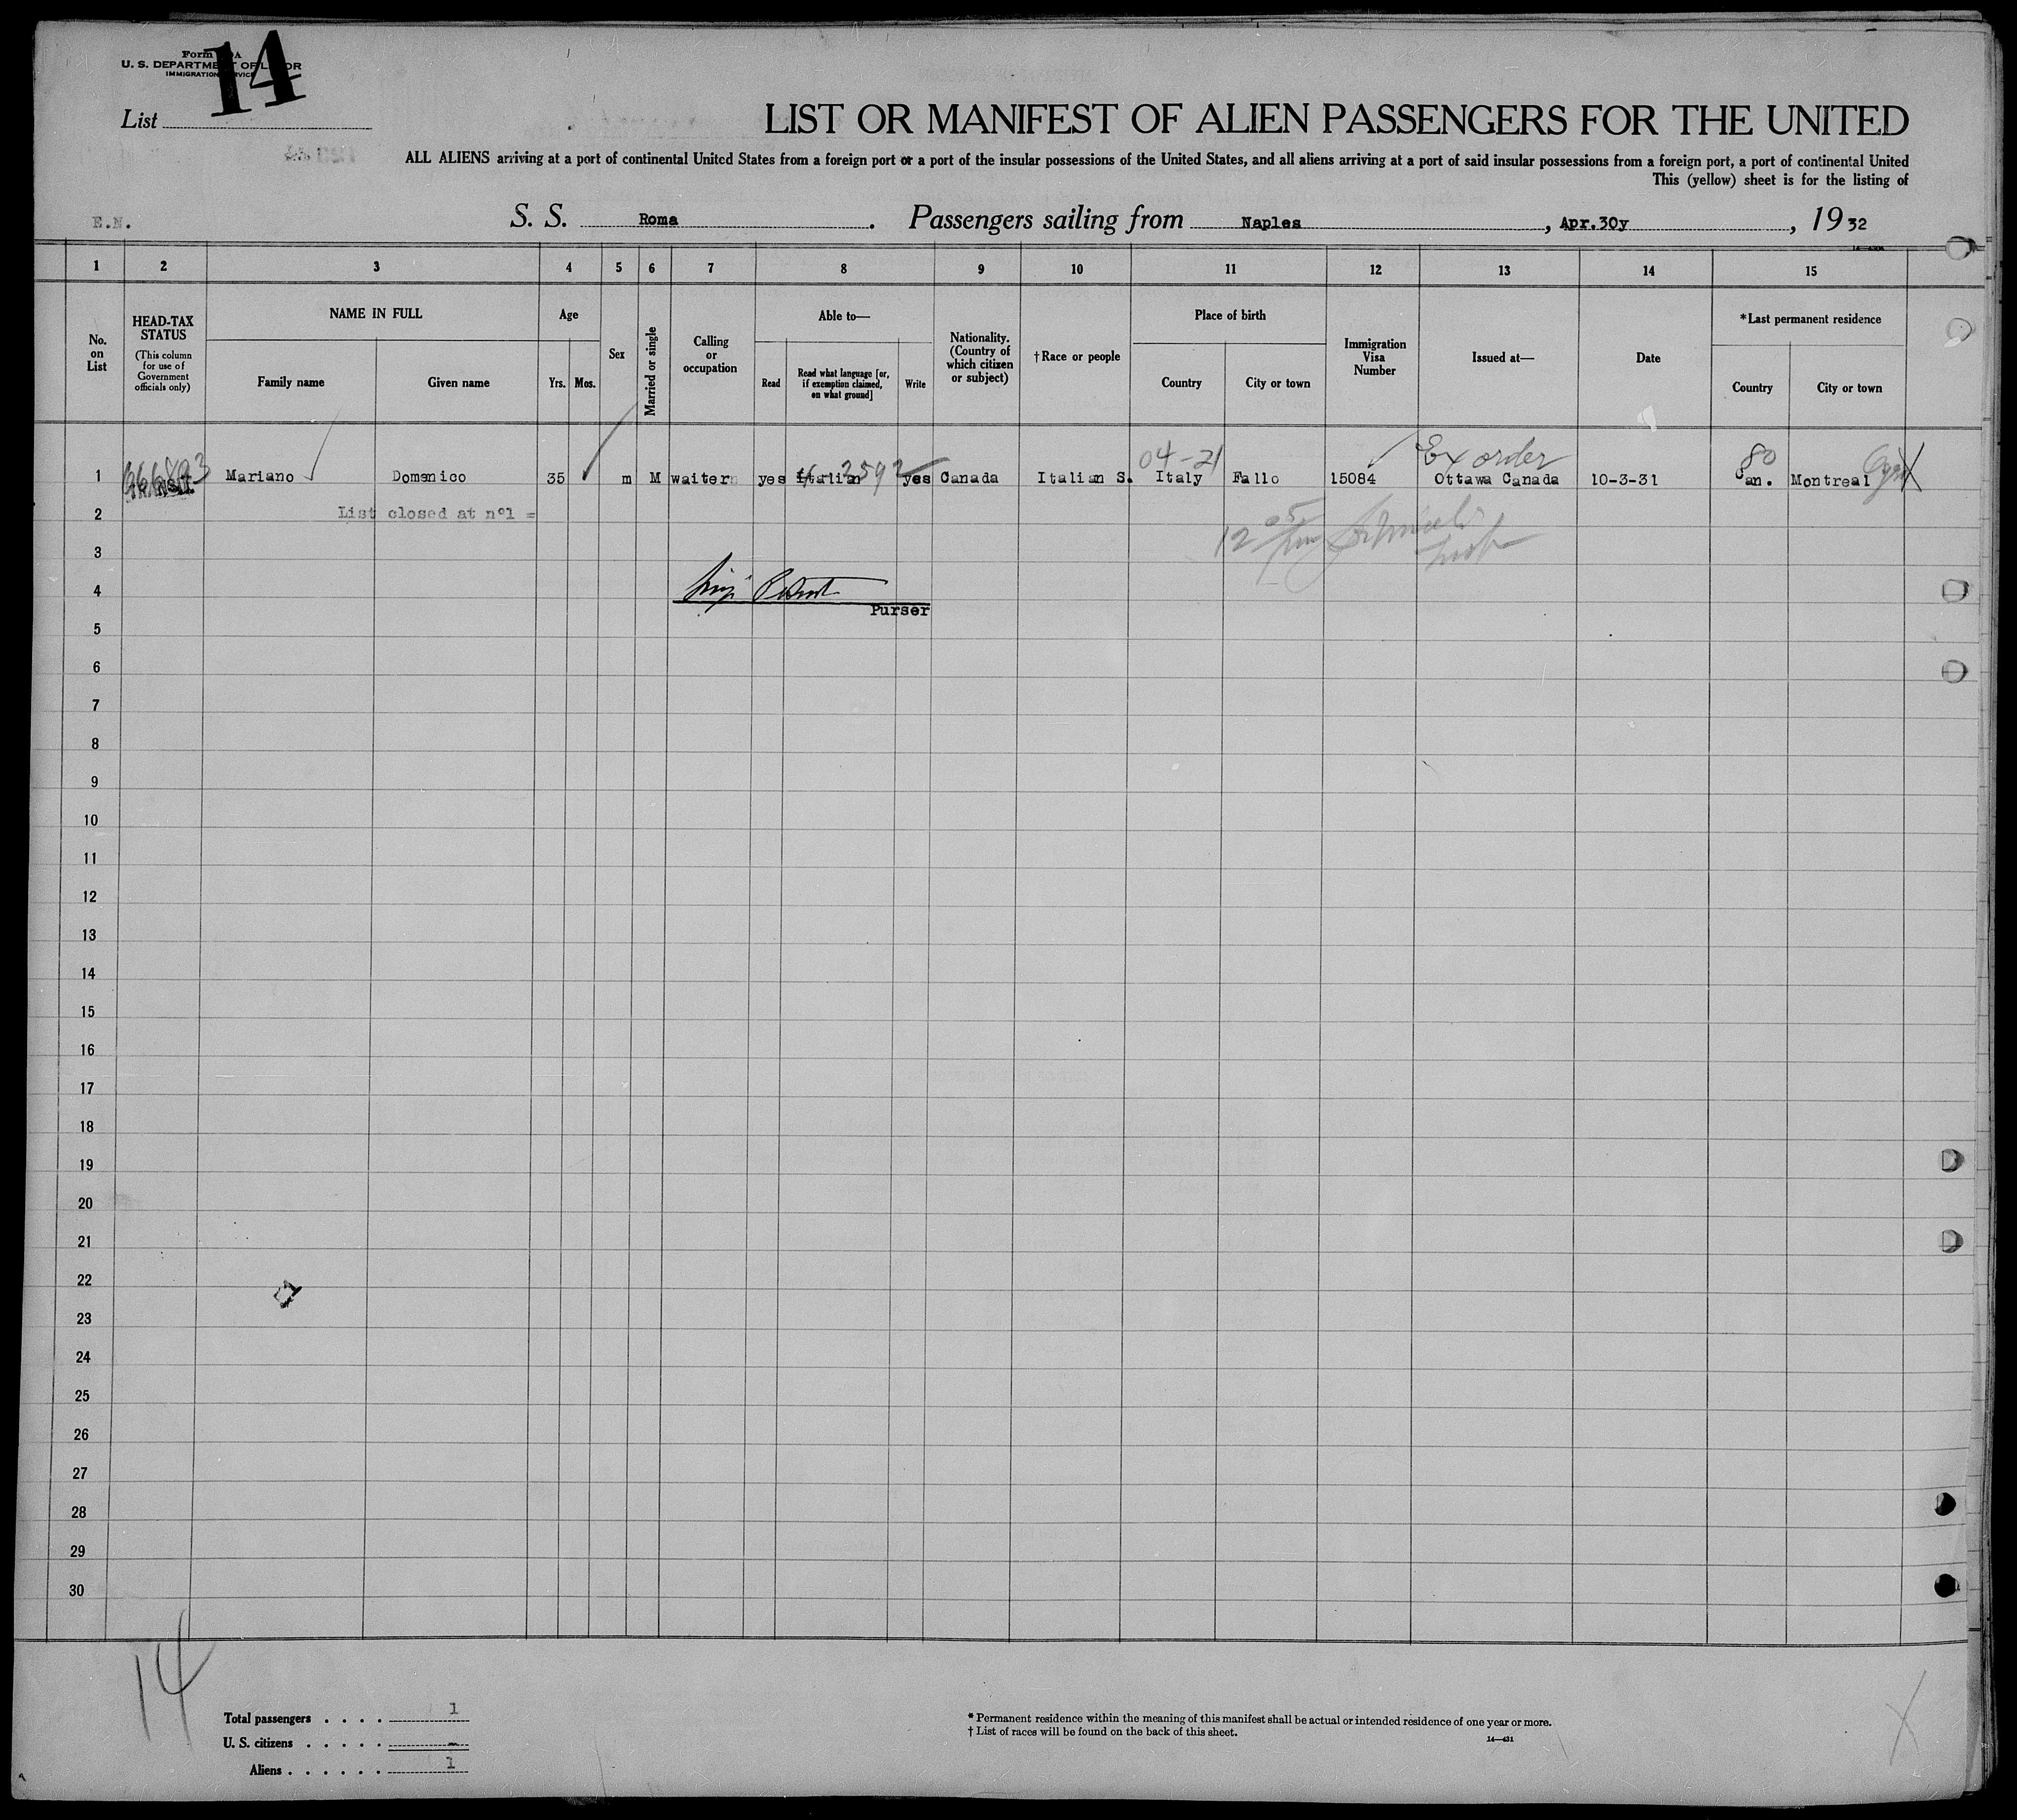 14
U. S. DEPARTMENT OF LABOR
IMMIGRATION SERVICE
List
LIST OR MANIFEST OF ALIEN PASSENGERS FOR THE UNITED
ALL ALIENS arriving at a port of continental United States from a foreign port or a port of the insular possessions of the United States, and all aliens arriving at a port of said insular possessions from a foreign port, a port of continental United
This (yellow) sheet is for the listing of
E.N.
S. S. Roma. Passengers sailing from Naples, Apr.30y, 1932
1 2 3 4 5 6 7 8 9 10 11 12 13 14 15
No. on List
HEAD-TAX STATUS
(This column for use of Government officials only)
NAME IN FULL
Family name
Given name
Age
Yrs. Mos.
Sex
Married or single
Calling or occupation
Able to—
Read
Read what language [or, if exemption claimed, on what ground]
Write
Nationality. (Country of which citizen or subject)
†Race or people
Place of birth
Country
City or town
Immigration Visa Number
Issued at—
Date
*Last permanent residence
Country
City or town
04-21 Ex order 80
1 Mariano Domenico 35 m M waiter yes Italian yes Canada Italian S. Italy Fallo 15084 Ottawa Canada 10-3-31 Can. Montreal
2 List closed at nº1 =
3
4
Purser
5
6
7
8
9
10
11
12
13
14
15
16
17
18
19
20
21
22
23
24
25
26
27
28
29
30
14
Total passengers . . . . 1
U. S. citizens . . . . . -
Aliens . . . . . . 1
* Permanent residence within the meaning of this manifest shall be actual or intended residence of one year or more.
† List of races will be found on the back of this sheet.
14—431